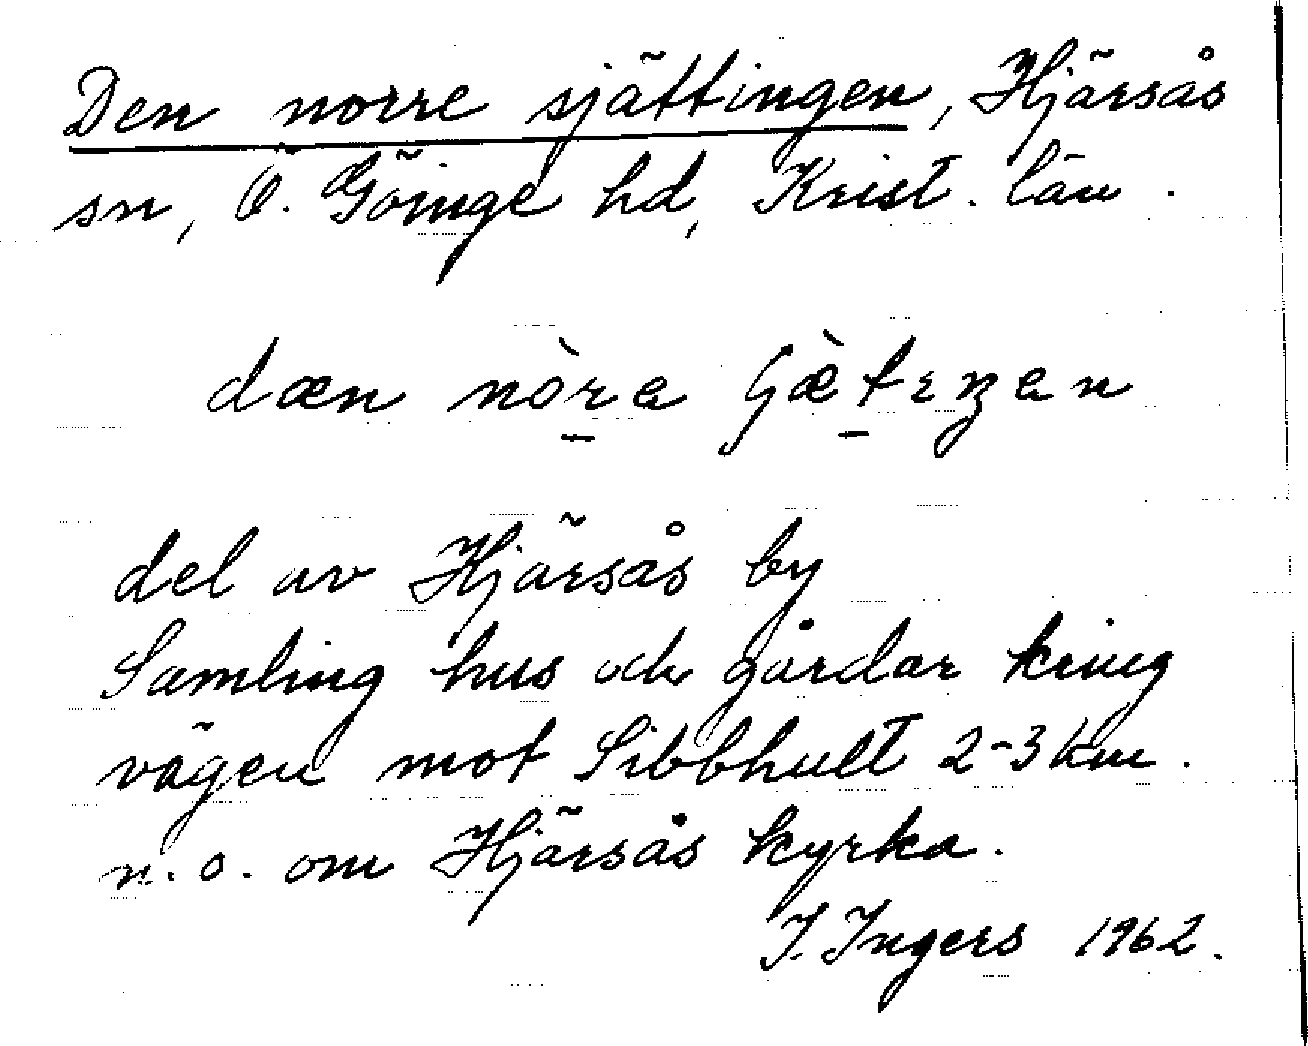 Den norre sjättingen, Hjärsås
sn, Ö. Göinge hd, Krist. län.
dæn nòra
del av Hjärsås by
Samling hus och gårdar kring
vägen mot Sibbhult 2-3 km.
n. o. om Hjärsås kyrka.
I. Ingers 1962.